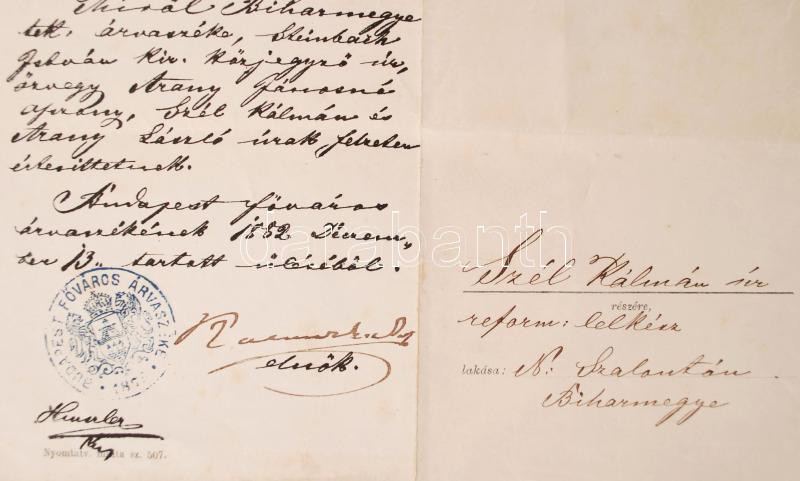 Miről Biharmegye
tek. árvaszéke, Steinbach
István kir. közjegyző úr,
özvegy Arany Jánosné
asszony, Szél Kálmán és
Arany László urak felzeten
értesíttetnek.
Budapest főváros
árvaszékének 1882 Decem„
ber 13„ tartott üléséből.
BUDAPEST FŐVÁROS ÁRVASZÉKE
elnök.
Nyomtatv. minta sz. 507.
Szél Kálmán úr
részére,
reform: lelkész
lakása: N. Szalontán
Biharmegye
darabanth